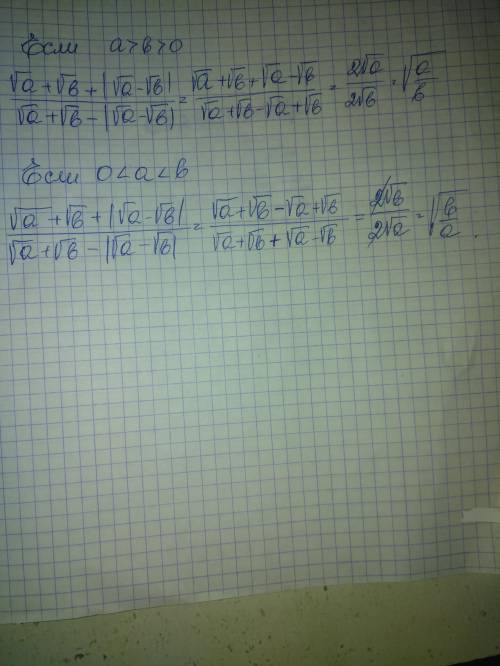 Если a>b>0
(√a+√b+|√a-√b|)/(√a+√b-|√a-√b|) = (√a+√b+√a-√b)/(√a+√b-√a+√b) = 2√a/2√b = √(a/b)
Если 0<a<b
(√a+√b+|√a-√b|)/(√a+√b-|√a-√b|) = (√a+√b-√a+√b)/(√a+√b+√a-√b) = 2√b/2√a = √(b/a).